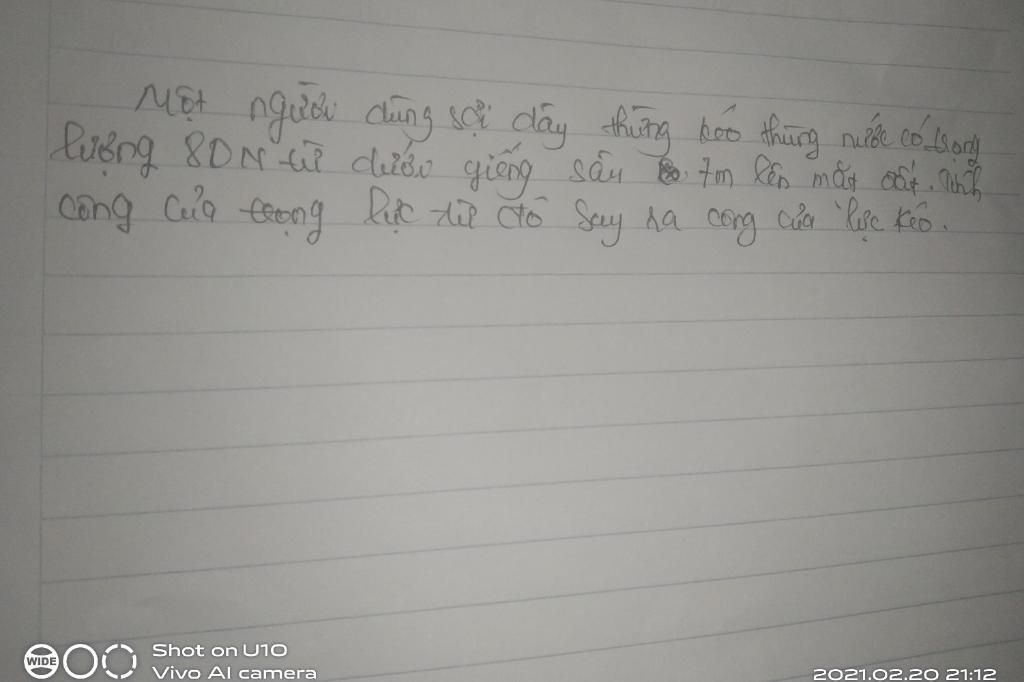 Một người dùng sợi dây thừng kéo thùng nước có trọng
lượng 80N từ dưới giếng sâu 7m lên mặt đất. Tính
công của trọng lực từ đó suy ra công của lực kéo.
WIDE
Shot on U10
Vivo AI camera
2021.02.20 21:12